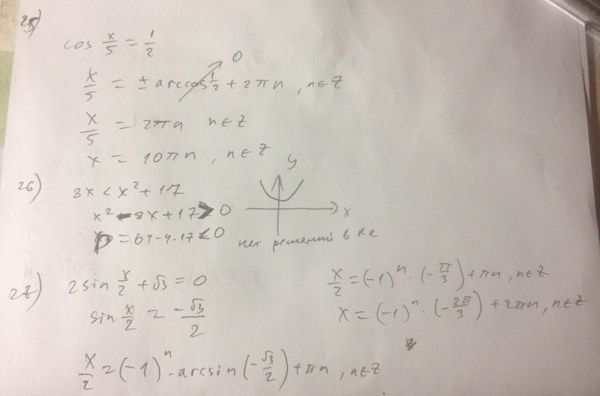 25)
cos x/5 = 1/2
x/5 = ± arccos 1/2 + 2πn, n∈Z
0
x/5 = 2πn n∈Z
x = 10πn, n∈Z
26)
8x < x² + 17
x² - 8x + 17 > 0
D = 64 - 4·17 < 0
y
x
нет решений в Re
27)
2 sin x/2 + √3 = 0
sin x/2 = -√3/2
x/2 = (-1)ⁿ · arcsin(-√3/2) + πn, n∈Z
x/2 = (-1)ⁿ · (-π/3) + πn, n∈Z
x = (-1)ⁿ · (-2π/3) + 2πn, n∈Z